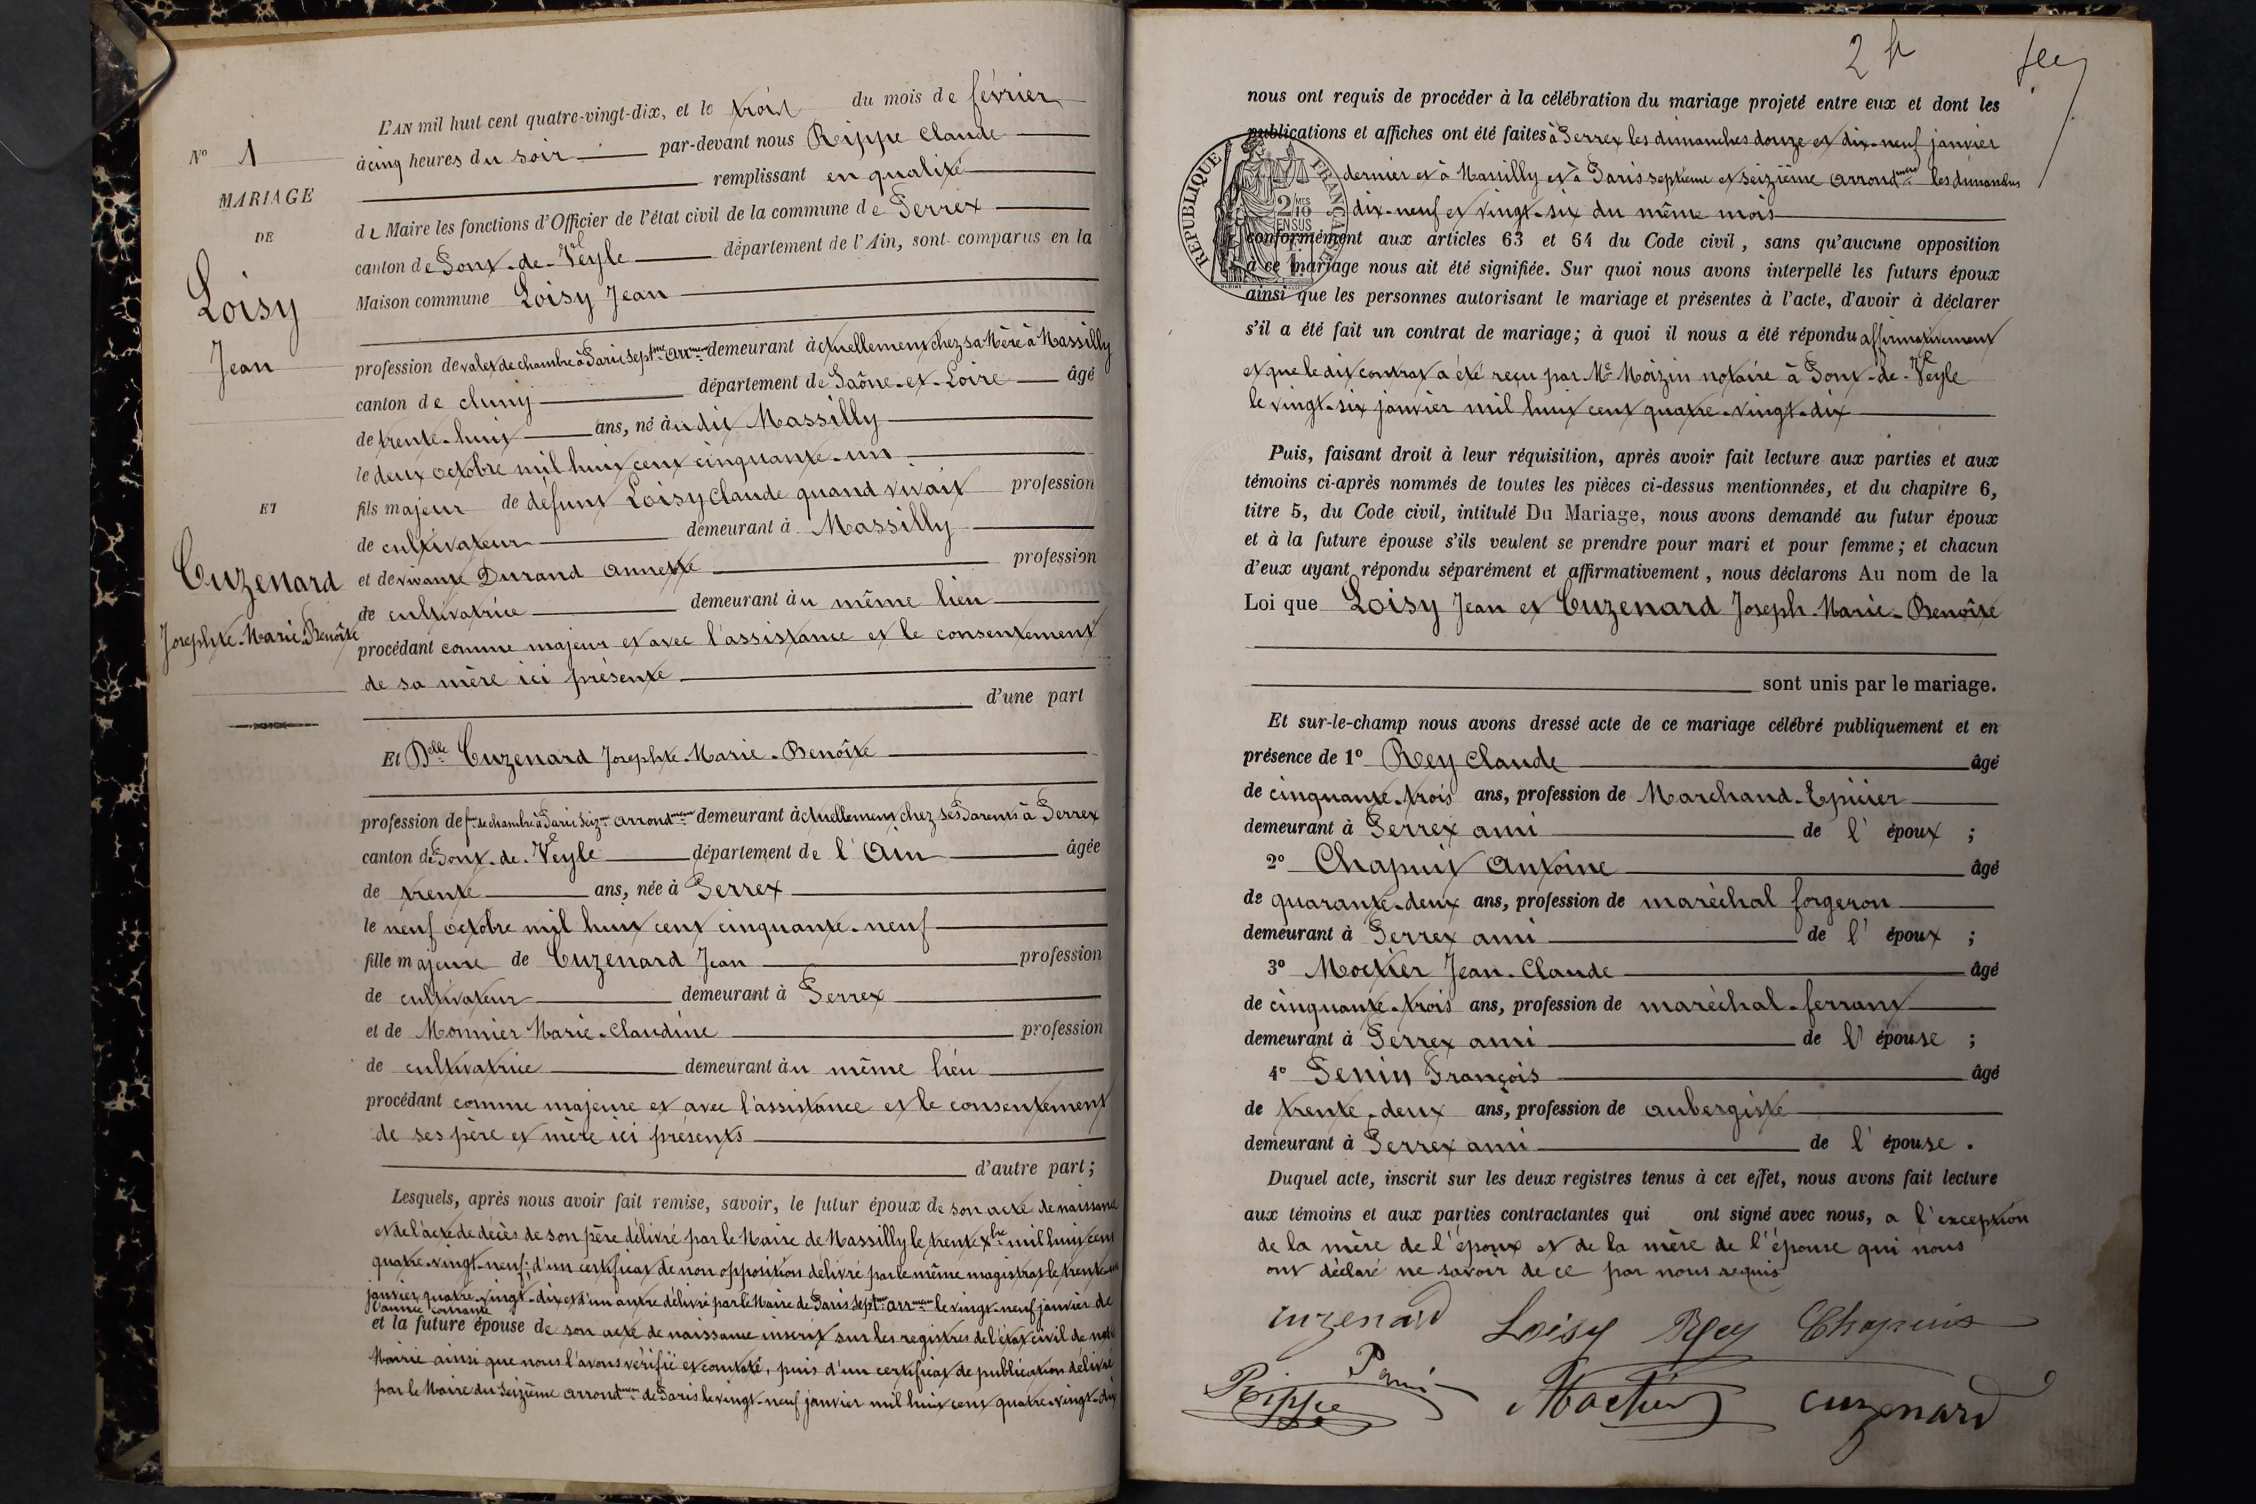 L'AN mil huit cent quatre-vingt-dix, et le trois du mois de février
à cinq heures du soir par-devant nous Rippe Claude
remplissant en qualité
de Maire les fonctions d'Officier de l'état civil de la commune de Perrex
canton de Pont-de-Veyle département de l'Ain, sont comparus en la
Maison commune Loisy Jean
profession de valet de chambre à Paris Septme Arrment demeurant actuellement chez sa Mère à Massilly
canton de Cluny département de Saône-et-Loire âgé
de trente-huit ans, né audit Massilly
le deux octobre mil huit cent cinquante-un
fils majeur de défunt Loisy Claude quand vivait profession
de cultivateur demeurant à Massilly
et de vivante Durand Annette profession
de cultivatrice demeurant au même lieu
procédant comme majeur et avec l'assistance et le consentement
de sa mère ici présente
d'une part
Et Delle Cuzenard Josephte-Marie-Benoîte
profession de fme de chambre à Paris Seizme arrondment demeurant actuellement chez ses Parents à Perrex
canton de Pont-de-Veyle département de l'Ain âgée
de trente ans, née à Perrex
le neuf octobre mil huit cent cinquante-neuf
fille majeure de Cuzenard Jean profession
de cultivateur demeurant à Perrex
et de Monnier Marie-Claudine profession
de cultivatrice demeurant au même lieu
procédant comme majeure et avec l'assistance et le consentement
de ses père et mère ici présents
d'autre part;
Lesquels, après nous avoir fait remise, savoir, le futur époux de son acte de naissance
et de l'acte de décès de son père délivré par le Maire de Massilly le trente Xbre mil huit cent
quatre-vingt-neuf; d'un certificat de non opposition délivré par le même magistrat le trente-un
janvier quatre-vingt-dix et d'un autre délivré par le Maire de Paris Septme arrment le vingt-neuf janvier de
l'année courante
et la future épouse de son acte de naissance inscrit sur les registres de l'état civil de notre
Mairie ainsi que nous l'avons vérifié et constaté, puis d'un certificat de publication délivré
par le Maire du Seizième arrondment de Paris le vingt-neuf janvier mil huit cent quatre-vingt-dix
No 1
MARIAGE
DE
Loisy
Jean
ET
Cuzenard
Josephte-Marie-Benoîte
2
nous ont requis de procéder à la célébration du mariage projeté entre eux et dont les
publications et affiches ont été faites à Perrex les dimanches douze et dix-neuf janvier
dernier et à Massilly et à Paris septième et seizième arrondment les dimanches
dix-neuf et vingt-six du même mois
conformément aux articles 63 et 64 du Code civil, sans qu'aucune opposition
à ce mariage nous ait été signifiée. Sur quoi nous avons interpellé les futurs époux
ainsi que les personnes autorisant le mariage et présentes à l'acte, d'avoir à déclarer
s'il a été fait un contrat de mariage; à quoi il nous a été répondu affirmativement
et que le dit contrat a été reçu par Me Moizin notaire à Pont-de-Veyle
le vingt-six janvier mil huit cent quatre-vingt-dix
RÉPUBLIQUE FRANÇAISE
2 MES
10
EN SUS
Puis, faisant droit à leur réquisition, après avoir fait lecture aux parties et aux
témoins ci-après nommés de toutes les pièces ci-dessus mentionnées, et du chapitre 6,
titre 5, du Code civil, intitulé Du Mariage, nous avons demandé au futur époux
et à la future épouse s'ils veulent se prendre pour mari et pour femme; et chacun
d'eux ayant répondu séparément et affirmativement, nous déclarons Au nom de la
Loi que Loisy Jean et Cuzenard Joseph-Marie-Benoîte
sont unis par le mariage.
Et sur-le-champ nous avons dressé acte de ce mariage célébré publiquement et en
présence de 1o Rey Claude âgé
de cinquante-trois ans, profession de Marchand-Epicier
demeurant à Perrex ami de l'époux;
2o Chapuit Antoine âgé
de quarante-deux ans, profession de maréchal forgeron
demeurant à Perrex ami de l'époux;
3o Moctier Jean-Claude âgé
de cinquante-trois ans, profession de maréchal-ferrant
demeurant à Perrex ami de l'épouse;
4o Penin François âgé
de trente-deux ans, profession de aubergiste
demeurant à Perrex ami de l'épouse.
Duquel acte, inscrit sur les deux registres tenus à cet effet, nous avons fait lecture
aux témoins et aux parties contractantes qui ont signé avec nous, a l'exception
de la mère de l'époux et de la mère de l'épouse qui nous
ont déclaré ne savoir de ce par nous requis
cuzenard Loisy Rey Chapuis
Rippe Penin Moctier cuzenard